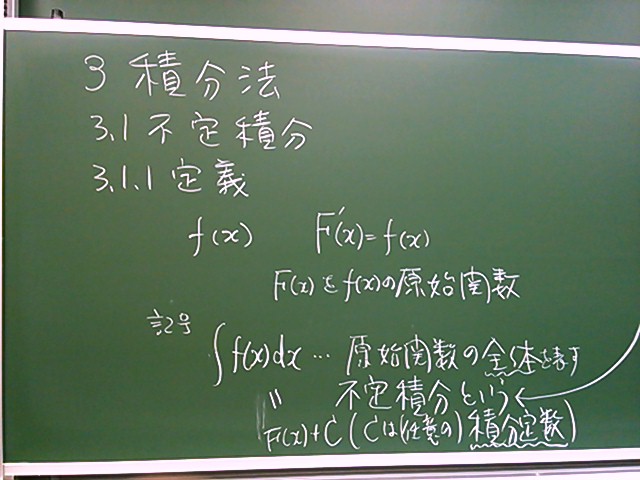 3 積分法
3.1 不定積分
3.1.1 定義
f(x) F'(x)=f(x)
F(x)をf(x)の原始関数
記号
∫f(x)dx … 原始関数の全体を表す
〃 不定積分という←
F(x)+C (Cは(任意の)積分定数)